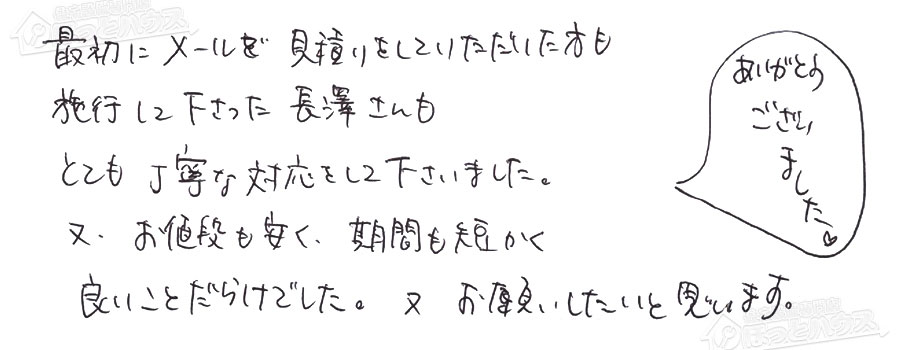 最初にメールで見積りをしていただいた方も
施行して下さった長澤さんも
とても丁寧な対応をして下さいました。
又、お値段も安く、期間も短かく
良いことだらけでした。又お願いしたいと思います。
ありがとう
ござい
ました
ほっとハウス